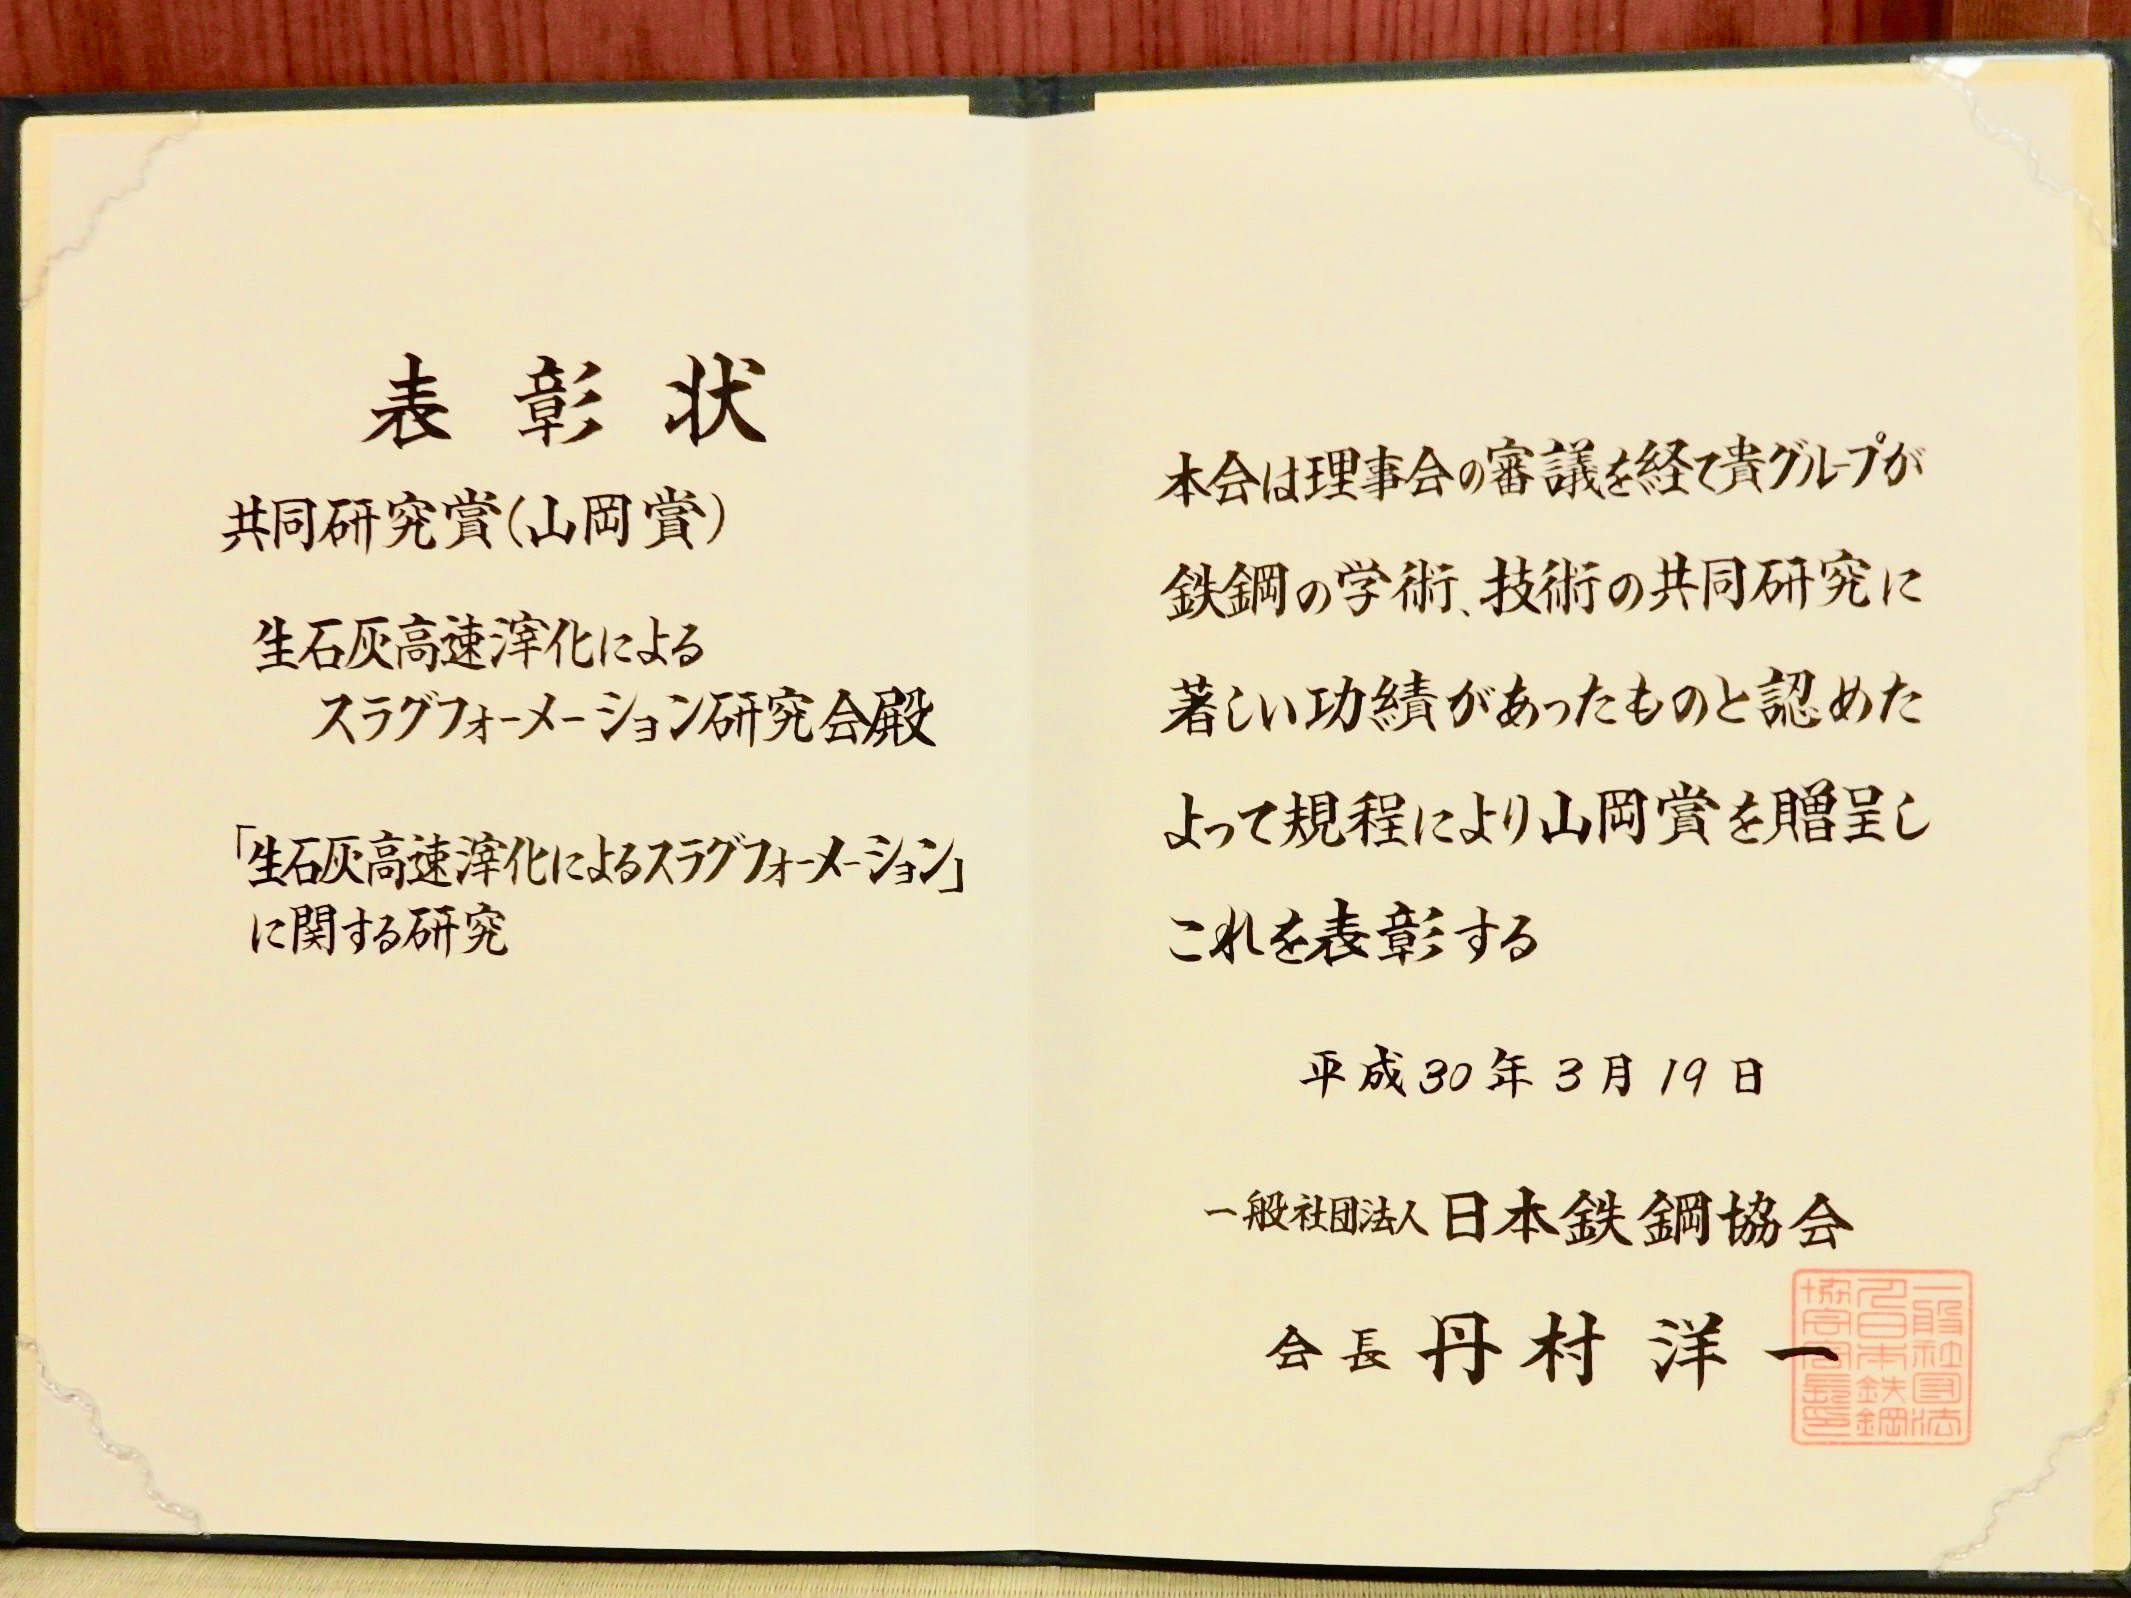 表彰状
共同研究賞(山岡賞)
生石灰高速滓化による
スラグフォーメーション研究会殿
「生石灰高速滓化によるスラグフォーメーション」
に関する研究
本会は理事会の審議を経て貴グループが
鉄鋼の学術、技術の共同研究に
著しい功績があったものと認めた
よって規程により山岡賞を贈呈し
これを表彰する
平成30年3月19日
一般社団法人日本鉄鋼協会
会長 丹村洋一
一般社団法
人日本鉄鋼
協会会長印